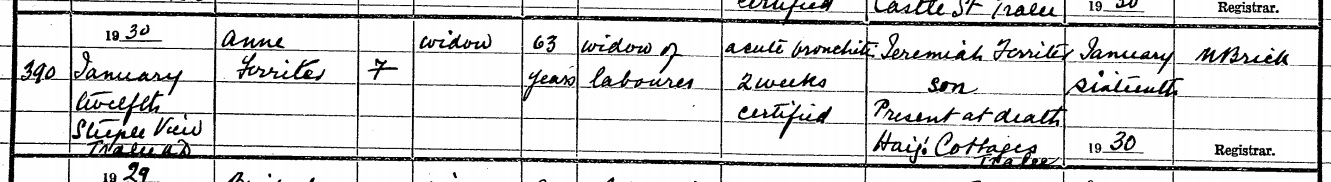 certified Castle St Tralee 1930 Registrar.
1930 Anne widow 63 widow of acute bronchitis Jeremiah Ferriter January M Brick
390 January Ferriter F years labourer 2 weeks son sixteenth
twelfth certified Present at death
Steeple View Haig Cottages 1930 Registrar.
Tralee Tralee
1929